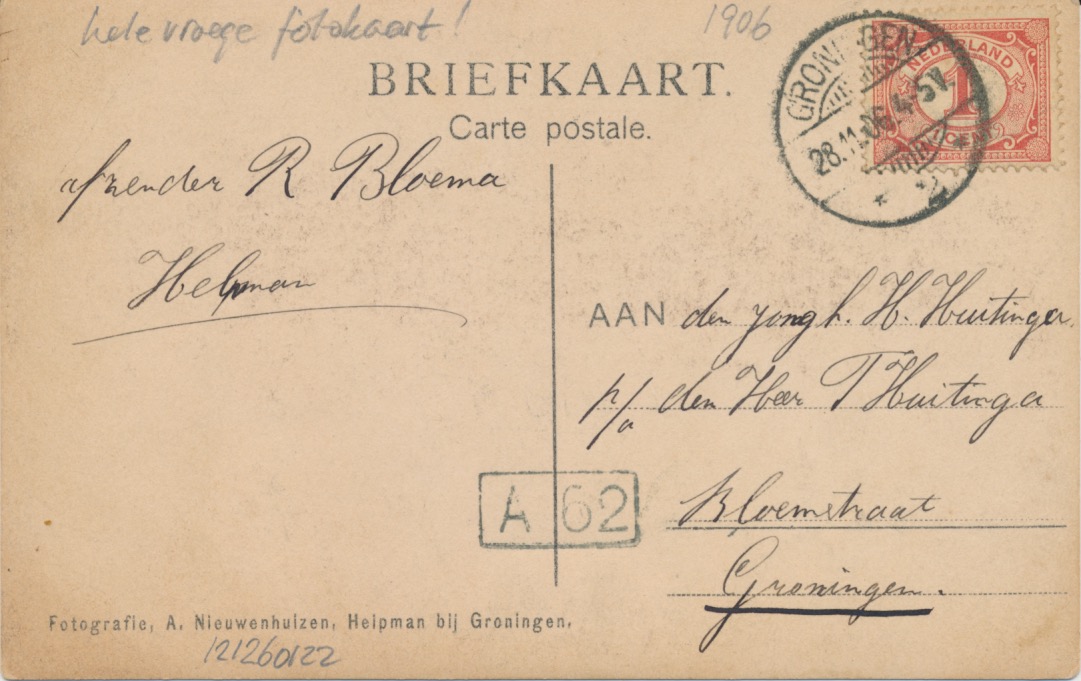 hele vroege fotokaart!
1906
BRIEFKAART.
Carte postale.
GRONINGEN
28.11.06.4-5V.
2
NEDERLAND
1
CENT
afzender R Bloema
Helpman
AAN den jongh. H. Huitinga
p/a den Heer T Huitinga
Bloemstraat
Groningen.
A 62
Fotografie, A. Nieuwenhuizen, Helpman bij Groningen.
121260122